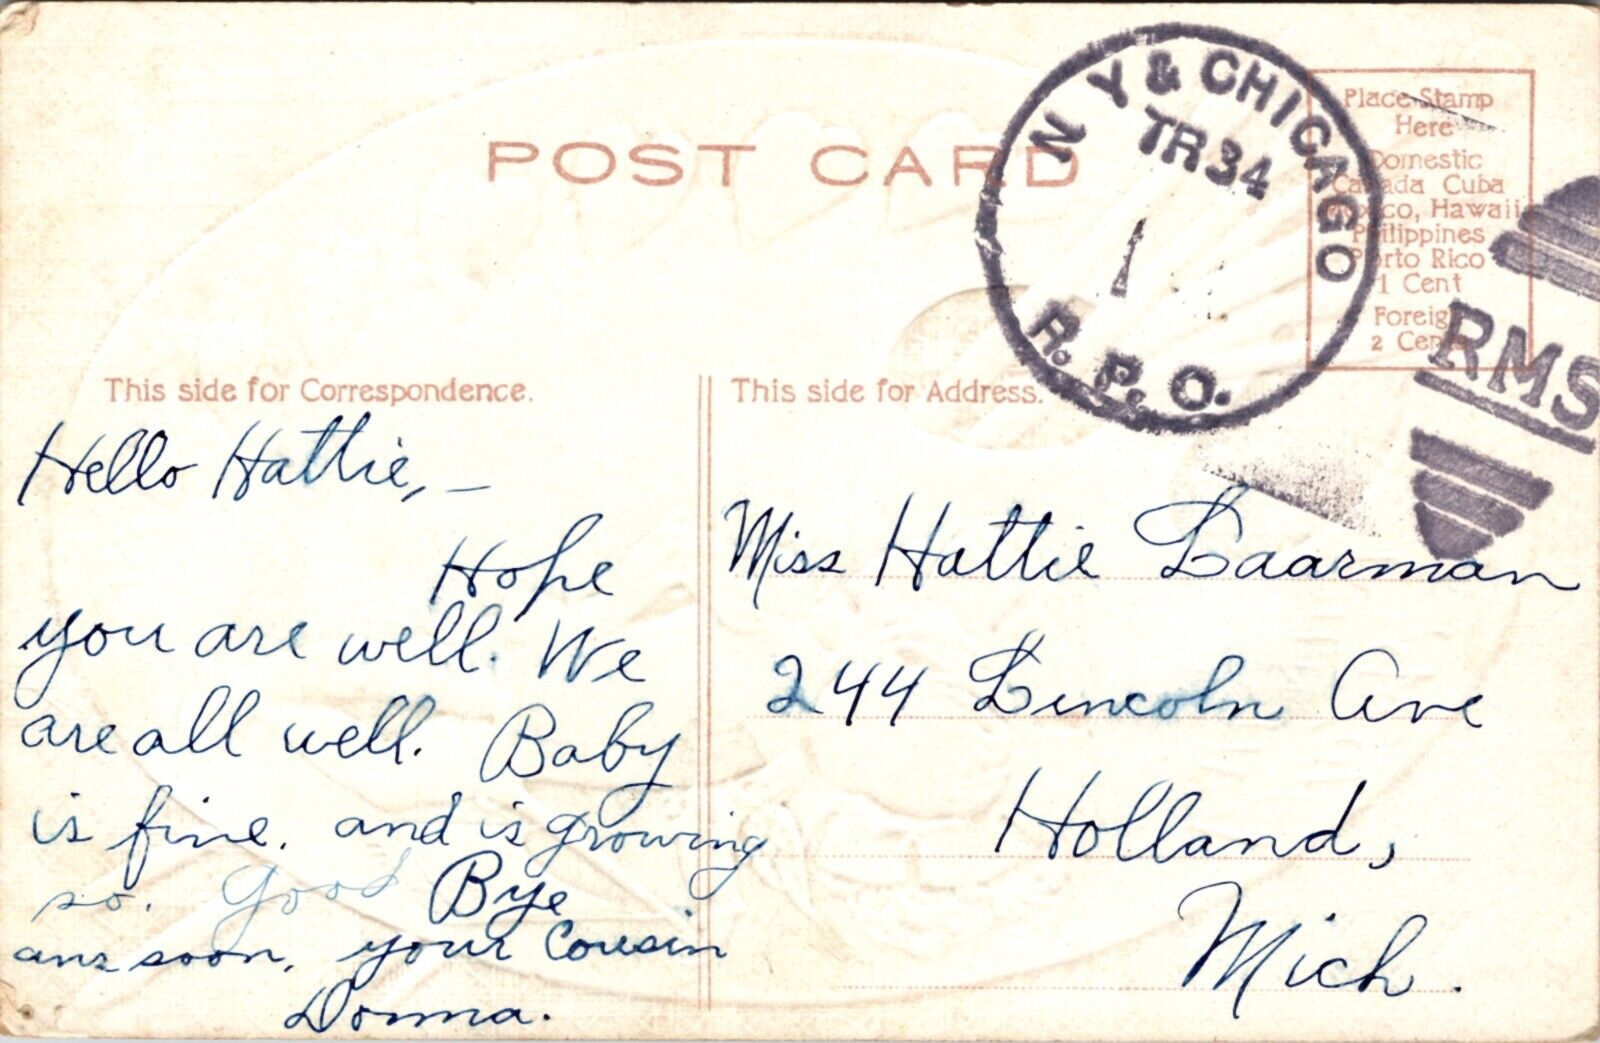 POST CARD
N Y & CHICAGO
TR 34
1
R. P. O.
RMS
Place Stamp
Here
Domestic
Canada Cuba
Mexico, Hawaii
Philippines
Porto Rico
1 Cent
Foreign
2 Cents
This side for Correspondence.
Hello Hattie, –
Hope
you are well. We
are all well. Baby
is fine. and is growing
so. Good Bye
ans soon. your Cousin
Donna.
This side for Address.
Miss Hattie Laarman
244 Lincoln Ave
Holland,
Mich.